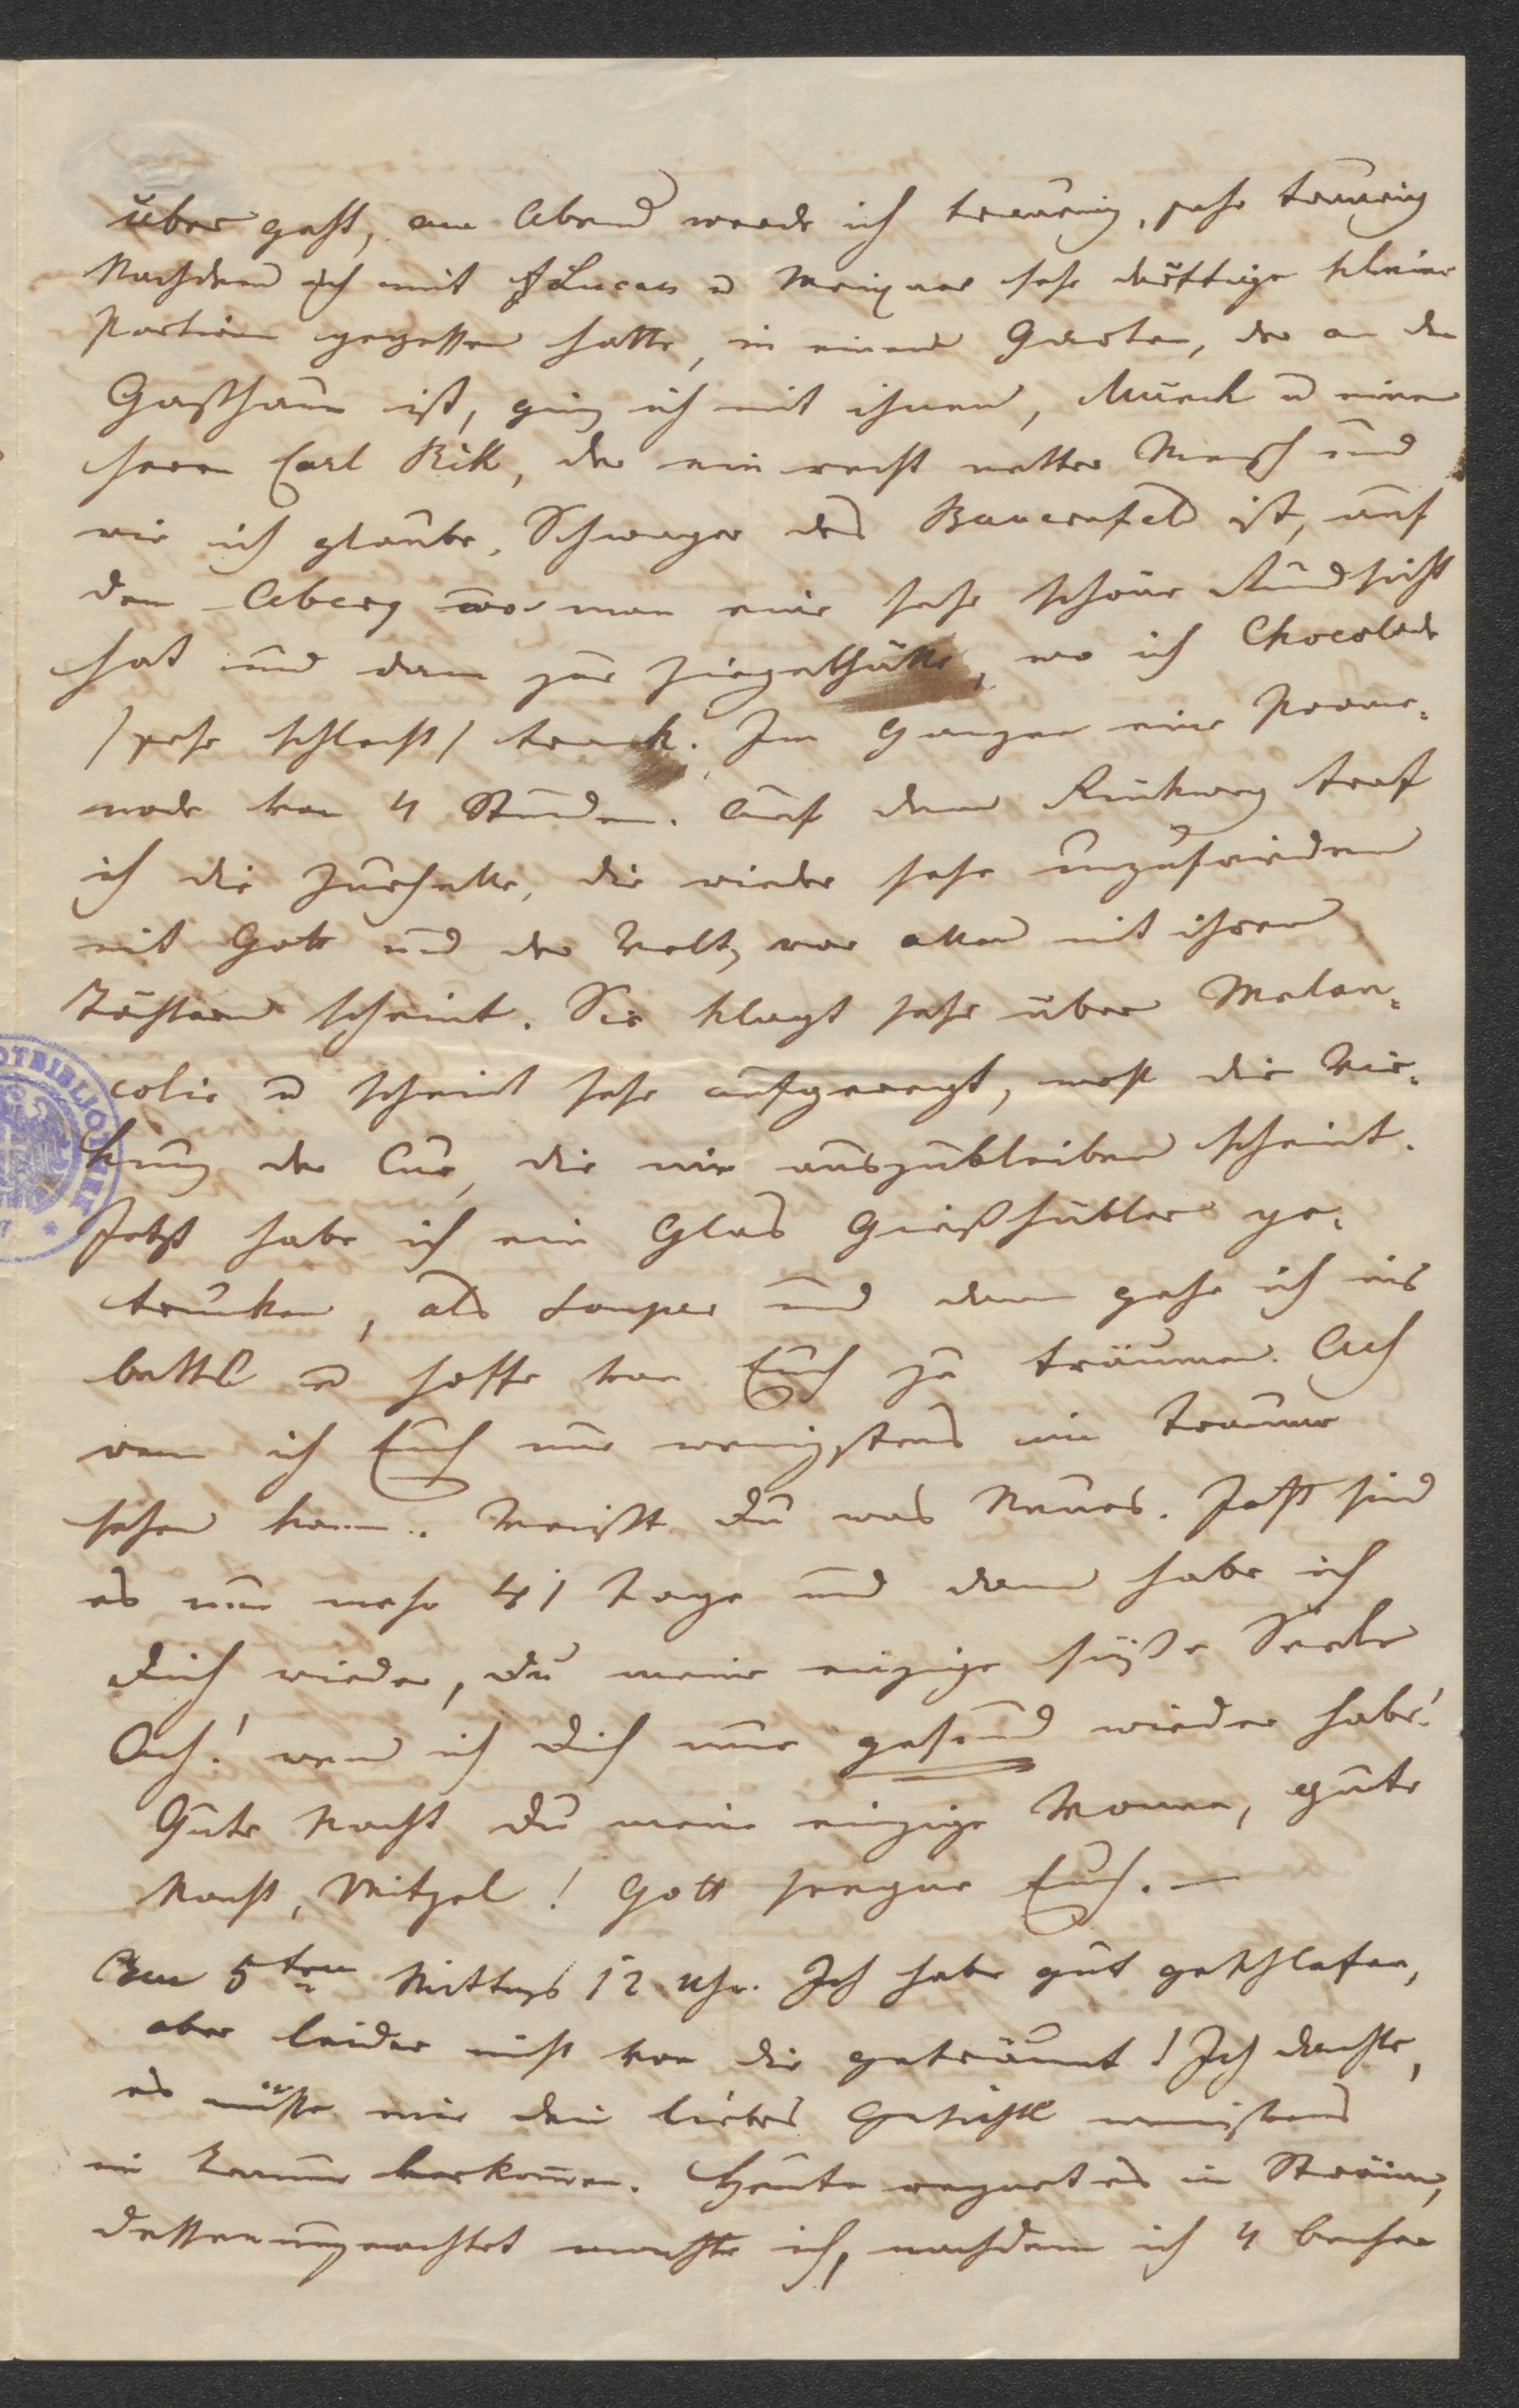 über geht, am Abend werde ich traurig, sehr traurig
Nachdem ich mit Lucas u Meixner sehr dürftige kleine
Portion gegessen hatte, in einem Garten, der an dem
Gasthaus ist, ging ich mit ihnen, Mück u einem
Herrn Carl Rik, der ein recht netter Mensch und
wie ich glaube, Schwager des Bauernfeld ist, auf
den Aberg wo man eine sehr schöne Rundsicht
hat und dann zur Ziegelhütte, wo ich Chocolade
/sehr schlecht/ trank. Im Ganzen eine Prome-
nade von 4 Stunden. Auf dem Rückweg traf
ich die Zurhelle, die wieder sehr unzufrieden
mit Gott und der Welt, vor allem mit ihren
Töchtern scheint. Sie klagt sehr über Melan-
colie u scheint sehr aufgeregt, wohl die Wir-
kung der Cur, die nie auszubleiben scheint.
Jetzt habe ich ein Glas Gießhübler ge-
trunken, als Souper und dann gehe ich ins
bettl u hoffe von Euch zu träumen. Ach
wenn ich Euch nur wenigstens im Traume
sehen kann. Weißt du was Neues. Jetzt sind
es nur mehr 41 Tage und dann habe ich
dich wieder, du meine einzige süße Seele
Ach! wenn ich dich nur gesund wieder habe!
Gute Nacht du meine einzige Wonne, gute
Nacht, Mitzel! Gott segne Euch. —
Am 5ten Mittags 12 Uhr. Ich habe gut geschlafen,
aber leider nicht von dir geträumt! Ich dachte,
es müßte mir dein liebes Gesichtl wenigstens
im Traume vorkommen. Heute regnet es in Strömen,
dessenungeachtet machte ich, nachdem ich 4 becher